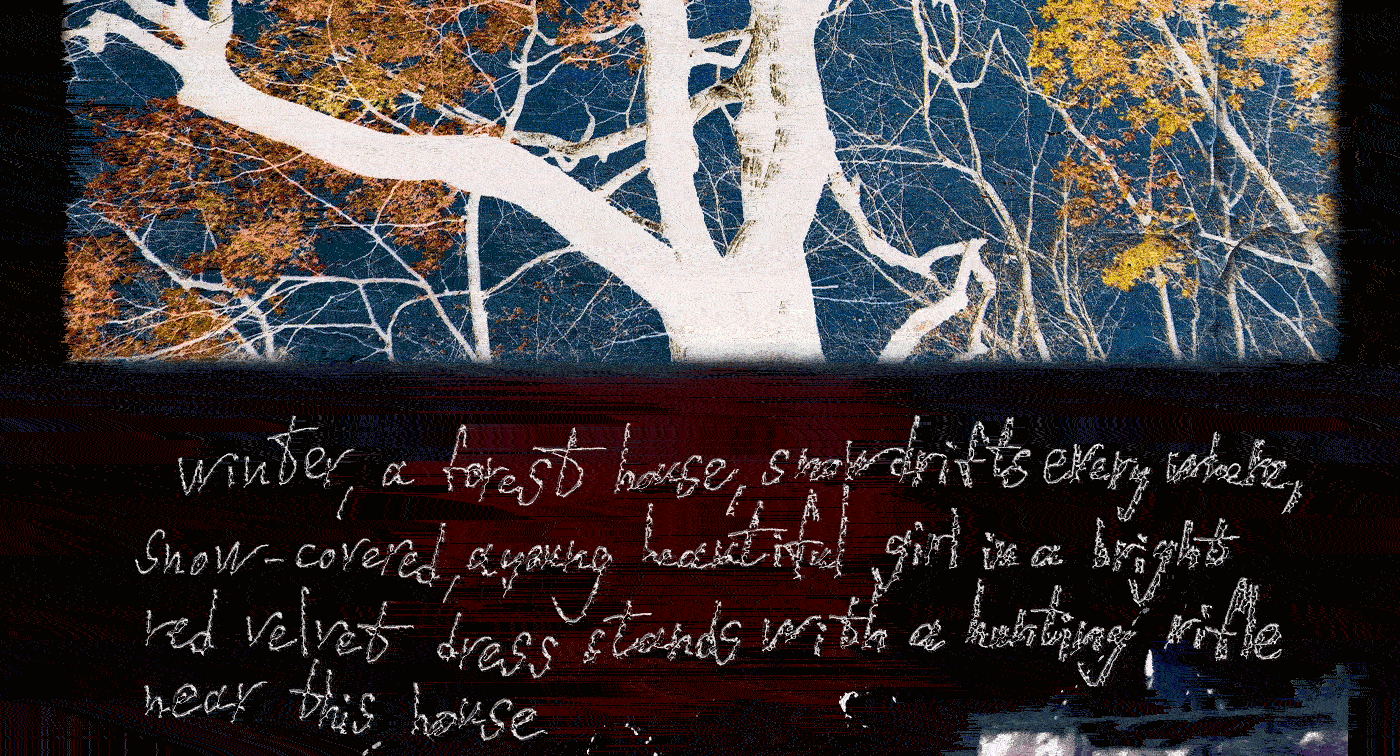 winter, a forest house, snowdrifts every where,
snow-covered, a young beautiful girl in a bright
red velvet dress stands with a hunting rifle
near this house